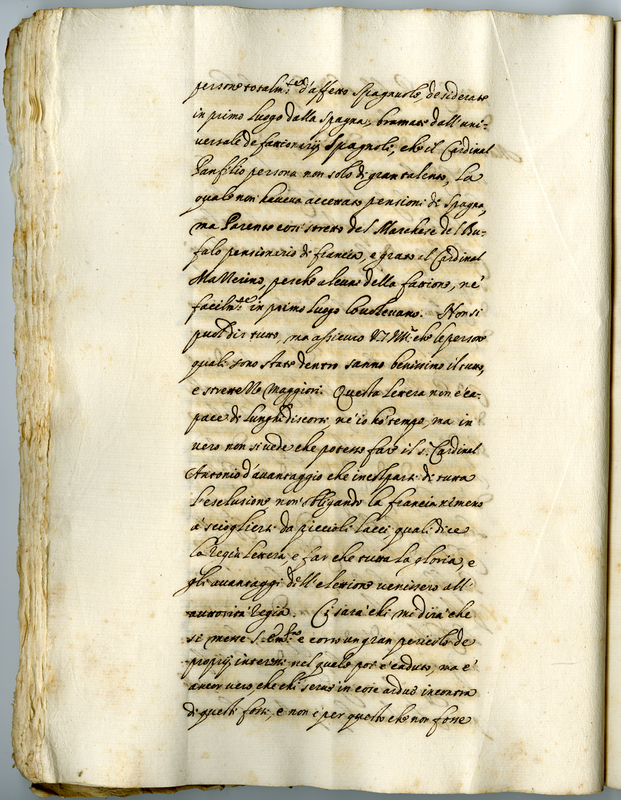 persone totalm.te d'affetto Spagnuolo, desiderato
in primo luogo dalla Spagna, bramato dall'uni-
versale de fationarij Spagnoli, che il Cardinal
Panfilio persona non solo di gran talento, la
quale non haueua accettato pensioni di Spagna,
ma Parente così stretto del Marchese del Bu-
falo pensionario di francia, e grato al Cardinal
Mazzerino, perche alcuno della fatione, ne
facilm.te in primo luogo lo voleuano. Non si
può dir tutto, ma assicuro V. che le persone
quali sono state dentro sanno benissimo il tutto,
e strettezze maggiori. Questa lettera non è ca-
pace di lunghi discorsi, ne io hò tempo, ma in
vero non si vede che potesse fare il S. Cardinal
Antonio d'auantaggio che incolparsi di tutta
l'esclusione non obligando la francia nimeno
à sciogliersi da piccioli lacci, quali dice
la Regia lettera e far che tutta la gloria, e
gli auantaggi dell'elettione venissero all'
auttorità Regia. Ci sarà chi mi dirà che
si mette S. Em.za e corso un gran pericolo de
proprij interessi nel quale poi è caduto, ma è
ancor vero che chi serue in cose ardue incontra
di questi forti, e non è per questo che non fosse